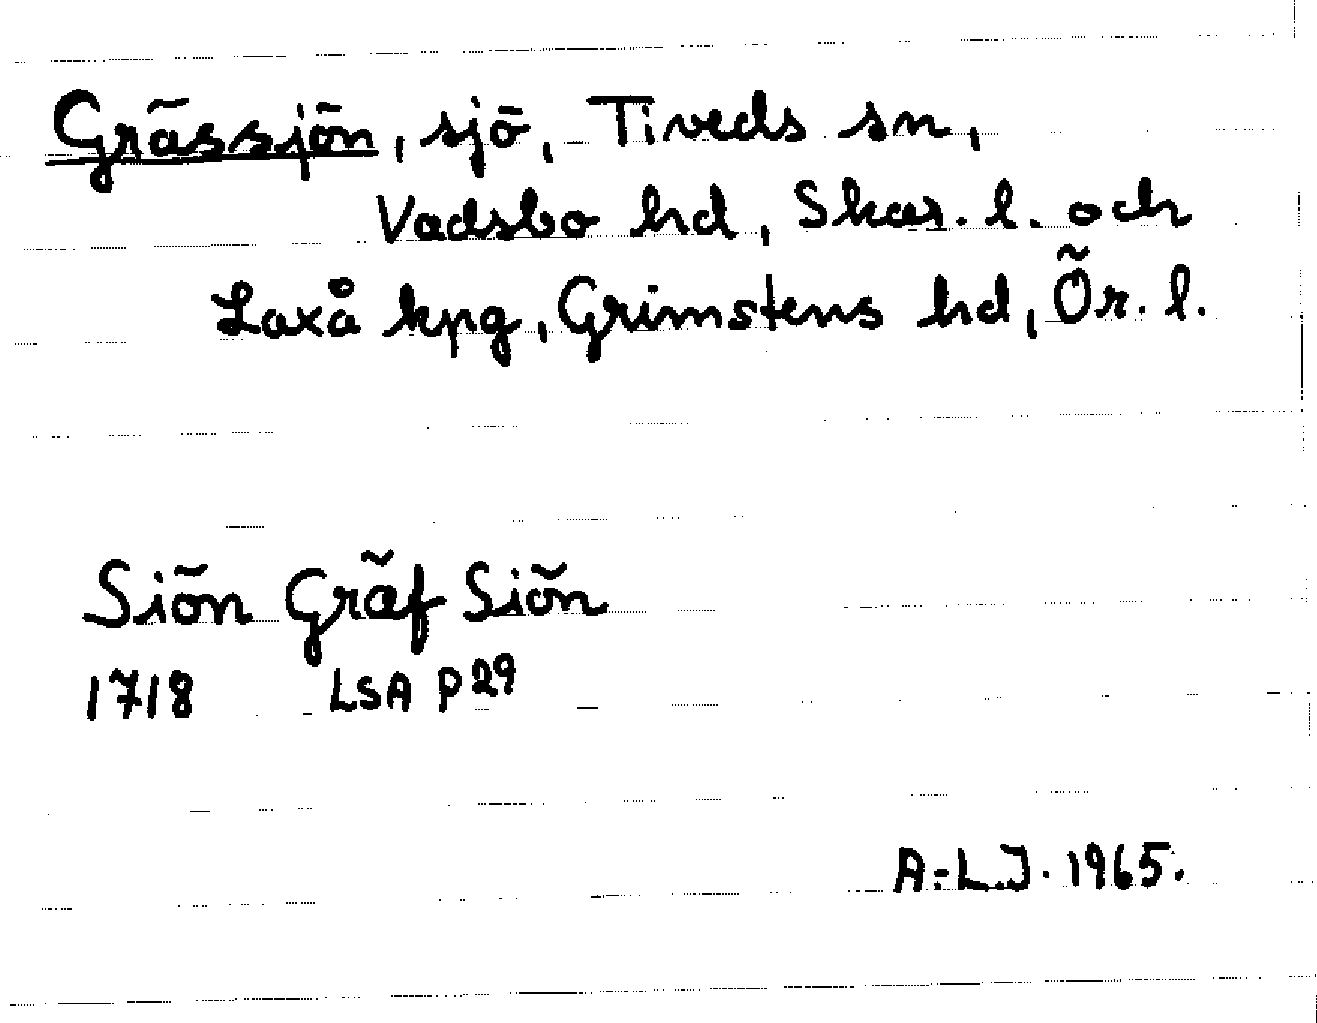 Grässjön, sjö, Tiveds sn,
Vadsbo hd, Skar. l. och
Laxå kpg, Grimstens hd, Ör. l.
Siön Gräf Siön
1718 LSA P 29
A-L.J. 1965.